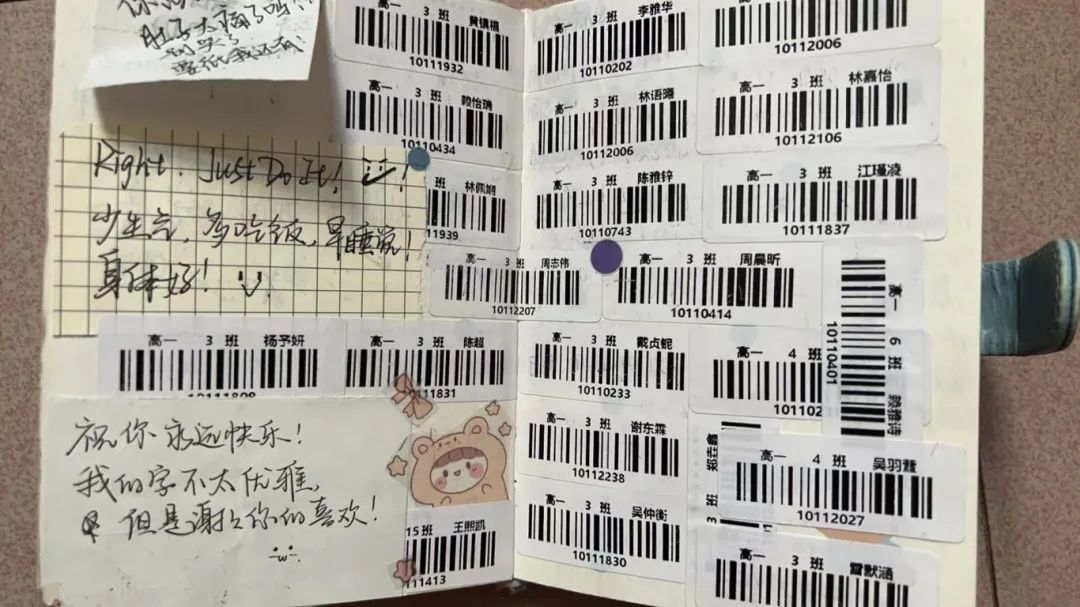 别哭了
要纸我还有
Right. Just Do It!
少生气,多吃饭,早睡觉!
身体好!
高一 3 班 黄镇福
10111932
高一 3 班 赖怡瑀
10110434
班 林佩娴
11939
高一 3 班 周志伟
10112207
高一 3 班 杨予妍
高一 3 班 陈超
11831
祝你永远快乐!
我的字不太优雅,
但是谢谢你的喜欢!
15 班 王熙凯
111413
高一 3 班 李雅华
10110202
10112006
高一 3 班 林语曦
10112006
高一 3 班 林嘉怡
10112106
高一 3 班 陈雅锌
10110743
高一 3 班 江瑾凌
10111837
高一 3 班 周晨昕
10110414
高一 3 班 戴贞鲵
10110233
高一 4 班
101102
高一 6 班 赖雅诗
10110401
高一 3 班 谢东霖
10112238
3 班
高一 4 班 吴羽薏
10112027
高一 3 班 吴仲衡
10111830
高一 3 班 雷默涵